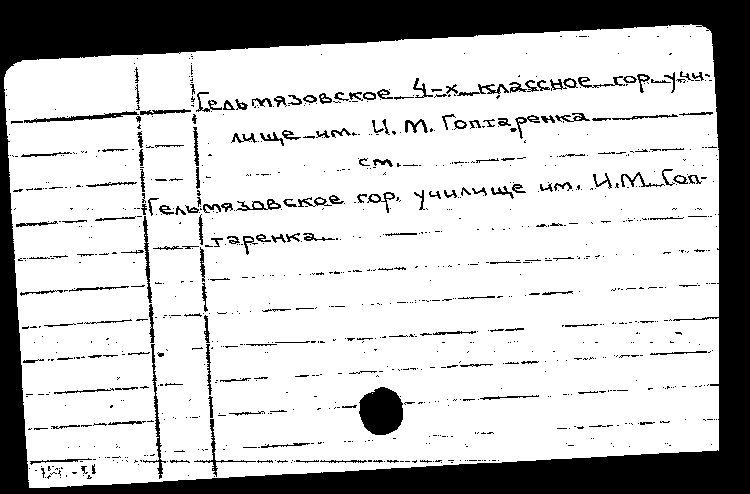 Гельмязовское 4-х классное гор. учи-
лище им. И. М. Гоптаренка
см.
Гельмязовское гор. училище им. И.М. Гоп-
таренка.